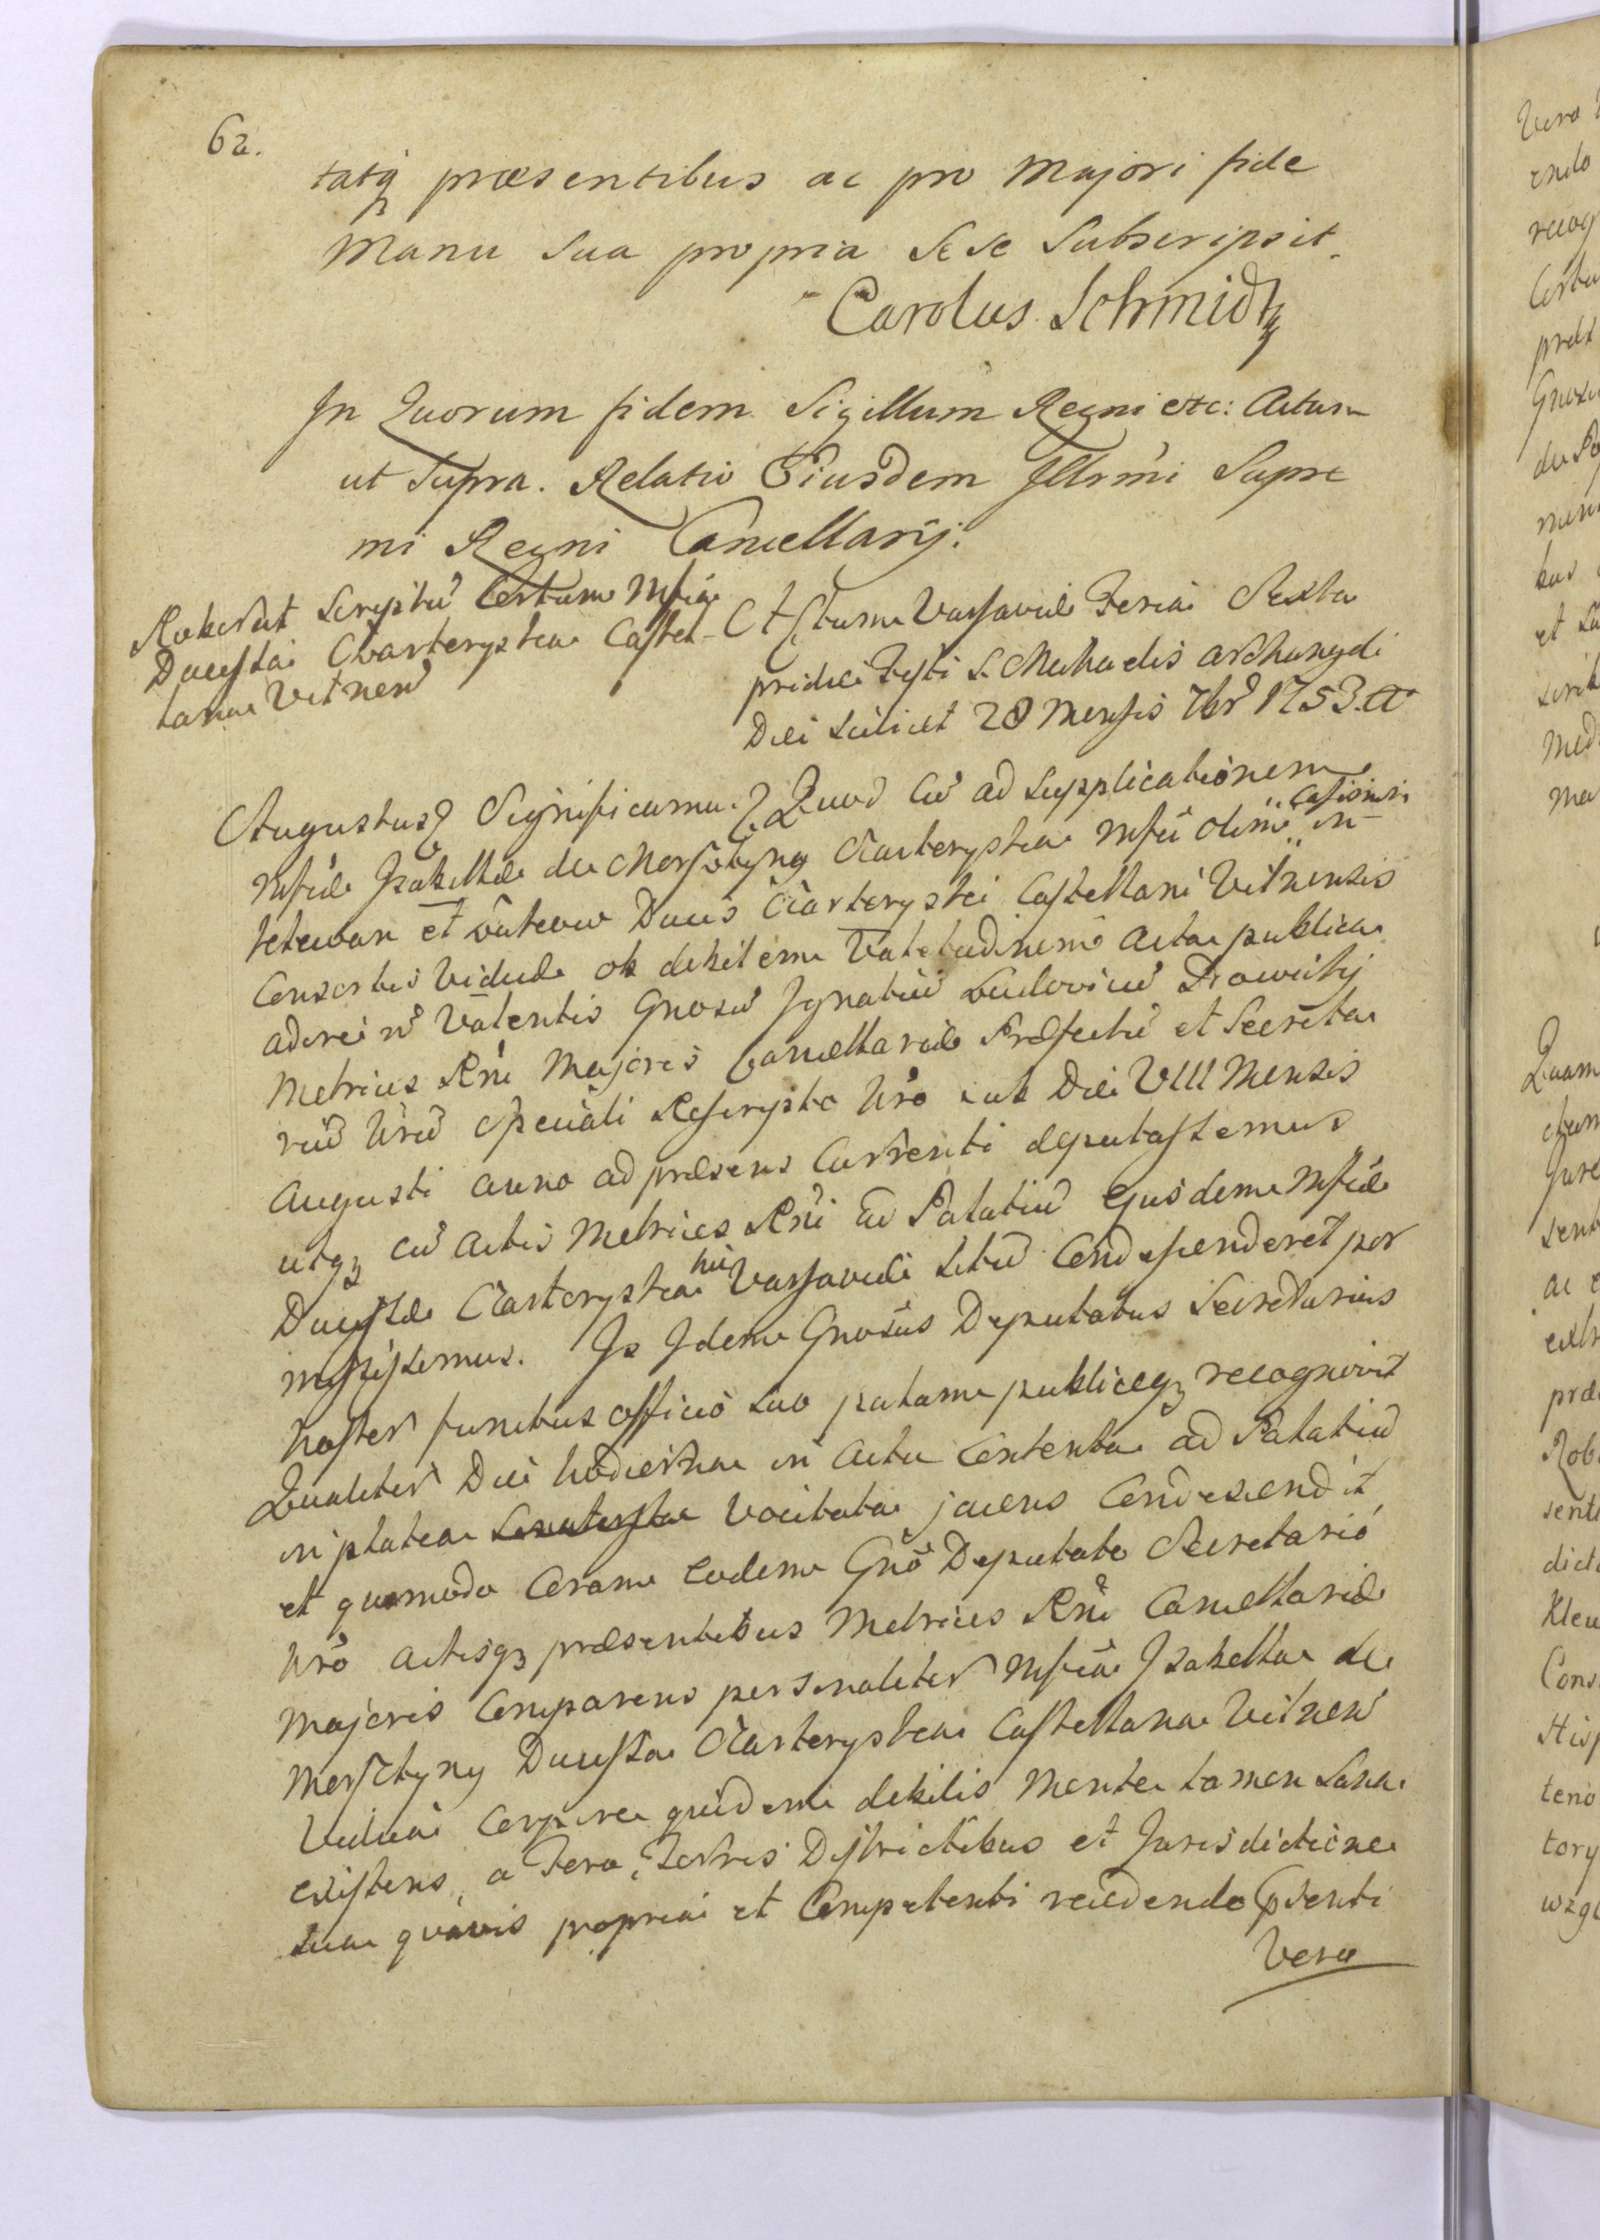 62.
tatq3 præsentibus ac pro Majori fide
Manu Sua propria Sese Subscripsit.
Carolus Schmidt
In Quorum fidem Sigillum Regni etc: Actum
ut Supra. Relatio Eiusdem Illrmi Supre
mi Regni Cancellarij.
Roborat Scryptū Certum Mficæ
Ducissæ Czartoryska Castel-
lanæ Vilnen̄
Actum Varsaviæ Feria Sexta
pridie Festi S. Michaelis Archangeli
Diei scilicet 28 Mensis 7br̄ 1753. A°
Augustus Significamus Quod cū ad Supplicationem
Mficæ Isabellæ de Morsztyny Czartoryska Mfci olim Casimiri in
Klewan et Żukow Ducis Czartoryski Castellani Vilnensis
Consortis Viduæ ob debilem Valetudinem Acta publica
adire n̄ Valentis Gnosū Ignatiū Ludovicū
Metrices Rni Majoris Cancellariæ Præfectū et Secreta
riū Nrū Speciali Rescrypto Nro sub Die VIII Mensis
Augusti anno ad præsens Currenti deputassemus
utq3 cū Actis Metrices Rni ad Palatiū Ejusdem Mficæ
Ducissæ Czartoryska hic Varsaviæ Sitū Condescenderet per
misissemus. Is Idem Gnosus Deputatus Secretarius
Noster functus officio suo palam publiceq3 recognovit
Qualiter Die hodierna in Actu Contenta ad Palatiū
in platea Senatorska Vocitata jacens Condescendit
et quomodo Coram Eodem Gnō Deputato Secretario
Nrō Actisq3 præsentibus Metrices Rni Cancellariæ
Majoris Comparens personaliter Mfica Isabella de
Morsztyny Ducissa Czartoryska Castellana Vilnen̄
Vidua Corpore quidem debilis Mente tamen Sana
existens, a Foro, Terris Districtibus et Jurisdictione
sua quavis propria et Competenti recedendo psenti
Vero